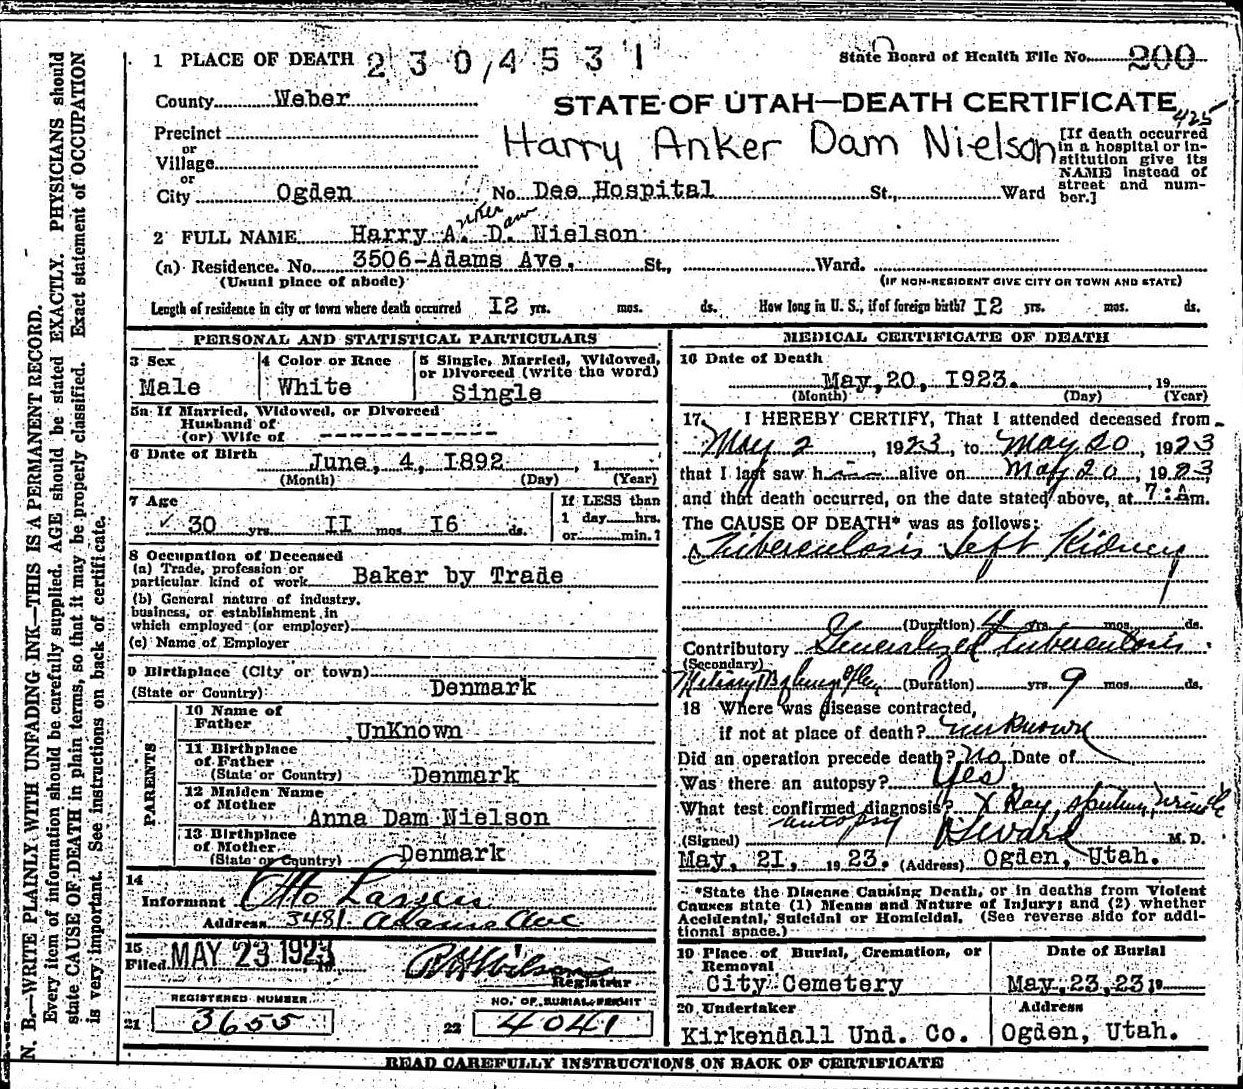 1 PLACE OF DEATH 2304531
State Board of Health File No. 200
County Weber
STATE OF UTAH—DEATH CERTIFICATE
425
Precinct
or
Village
or
City Ogden No. Dee Hospital St., Ward
Harry Anker Dam Nielson
[If death occurred
in a hospital or in-
stitution give its
NAME instead of
street and num-
ber.]
nker am
2 FULL NAME Harry A. D. Nielson
(a) Residence. No. 3506-Adams Ave. St., Ward.
(Usual place of abode)
(IF NON-RESIDENT GIVE CITY OR TOWN AND STATE)
Length of residence in city or town where death occurred I2 yrs. mos. ds. How long in U. S., if of foreign birth? I2 yrs. mos. ds.
PERSONAL AND STATISTICAL PARTICULARS
3 Sex
Male
4 Color or Race
White
5 Single, Married, Widowed,
or Divorced (write the word)
Single
5a If Married, Widowed, or Divorced
Husband of
(or) Wife of
6 Date of Birth June, 4, I892, 1
(Month) (Day) (Year)
7 Age
30 yrs. II mos. I6 ds.
If LESS than
1 day hrs.
or min.?
8 Occupation of Deceased
(a) Trade, profession or
particular kind of work Baker by Trade
(b) General nature of industry,
business, or establishment in
which employed (or employer)
(c) Name of Employer
9 Birthplace (City or town)
(State or Country) Denmark
PARENTS
10 Name of
Father UnKnown
11 Birthplace
of Father
(State or Country) Denmark
12 Maiden Name
of Mother
Anna Dam Nielson
13 Birthplace
of Mother
(State or Country) Denmark
14
Informant Otto Larsen
Address 3481 Adams Ave
15
Filed MAY 23 1923, 19
R H Wilson
Registrar
REGISTERED NUMBER
21 3655
NO. OF BURIAL PERMIT
22 4041
MEDICAL CERTIFICATE OF DEATH
16 Date of Death
May, 20, I923. 19
(Month) (Day) (Year)
17 I HEREBY CERTIFY, That I attended deceased from
May 2, 1923, to May 20, 1923
that I last saw him alive on May 20, 1923
and that death occurred, on the date stated above, at 7:Am.
The CAUSE OF DEATH* was as follows:
Tuberculosis Left Kidney
(Duration) 4 yrs. mos. ds.
Contributory Generalized Tuberculosis
(Secondary)
Miliary Tb of lung (Duration) yrs. 9 mos. ds.
18 Where was disease contracted,
if not at place of death? unknown
Did an operation precede death? No Date of
Was there an autopsy? Yes
What test confirmed diagnosis? X Ray, sputum, urine
autopsy
(Signed) M. D.
May, 2I, 1923. (Address) Ogden, Utah.
*State the Disease Causing Death, or in deaths from Violent
Causes state (1) Means and Nature of Injury; and (2) whether
Accidental, Suicidal or Homicidal. (See reverse side for addi-
tional space.)
19 Place of Burial, Cremation, or
Removal
City Cemetery
Date of Burial
May, 23, 23 19
20 Undertaker
Kirkendall Und. Co.
Address
Ogden, Utah.
READ CAREFULLY INSTRUCTIONS ON BACK OF CERTIFICATE
N. B.—WRITE PLAINLY WITH UNFADING INK—THIS IS A PERMANENT RECORD.
Every item of information should be carefully supplied. AGE should be stated EXACTLY. PHYSICIANS should
state CAUSE OF DEATH in plain terms, so that it may be properly classified. Exact statement of OCCUPATION
is very important. See instructions on back of certificate.